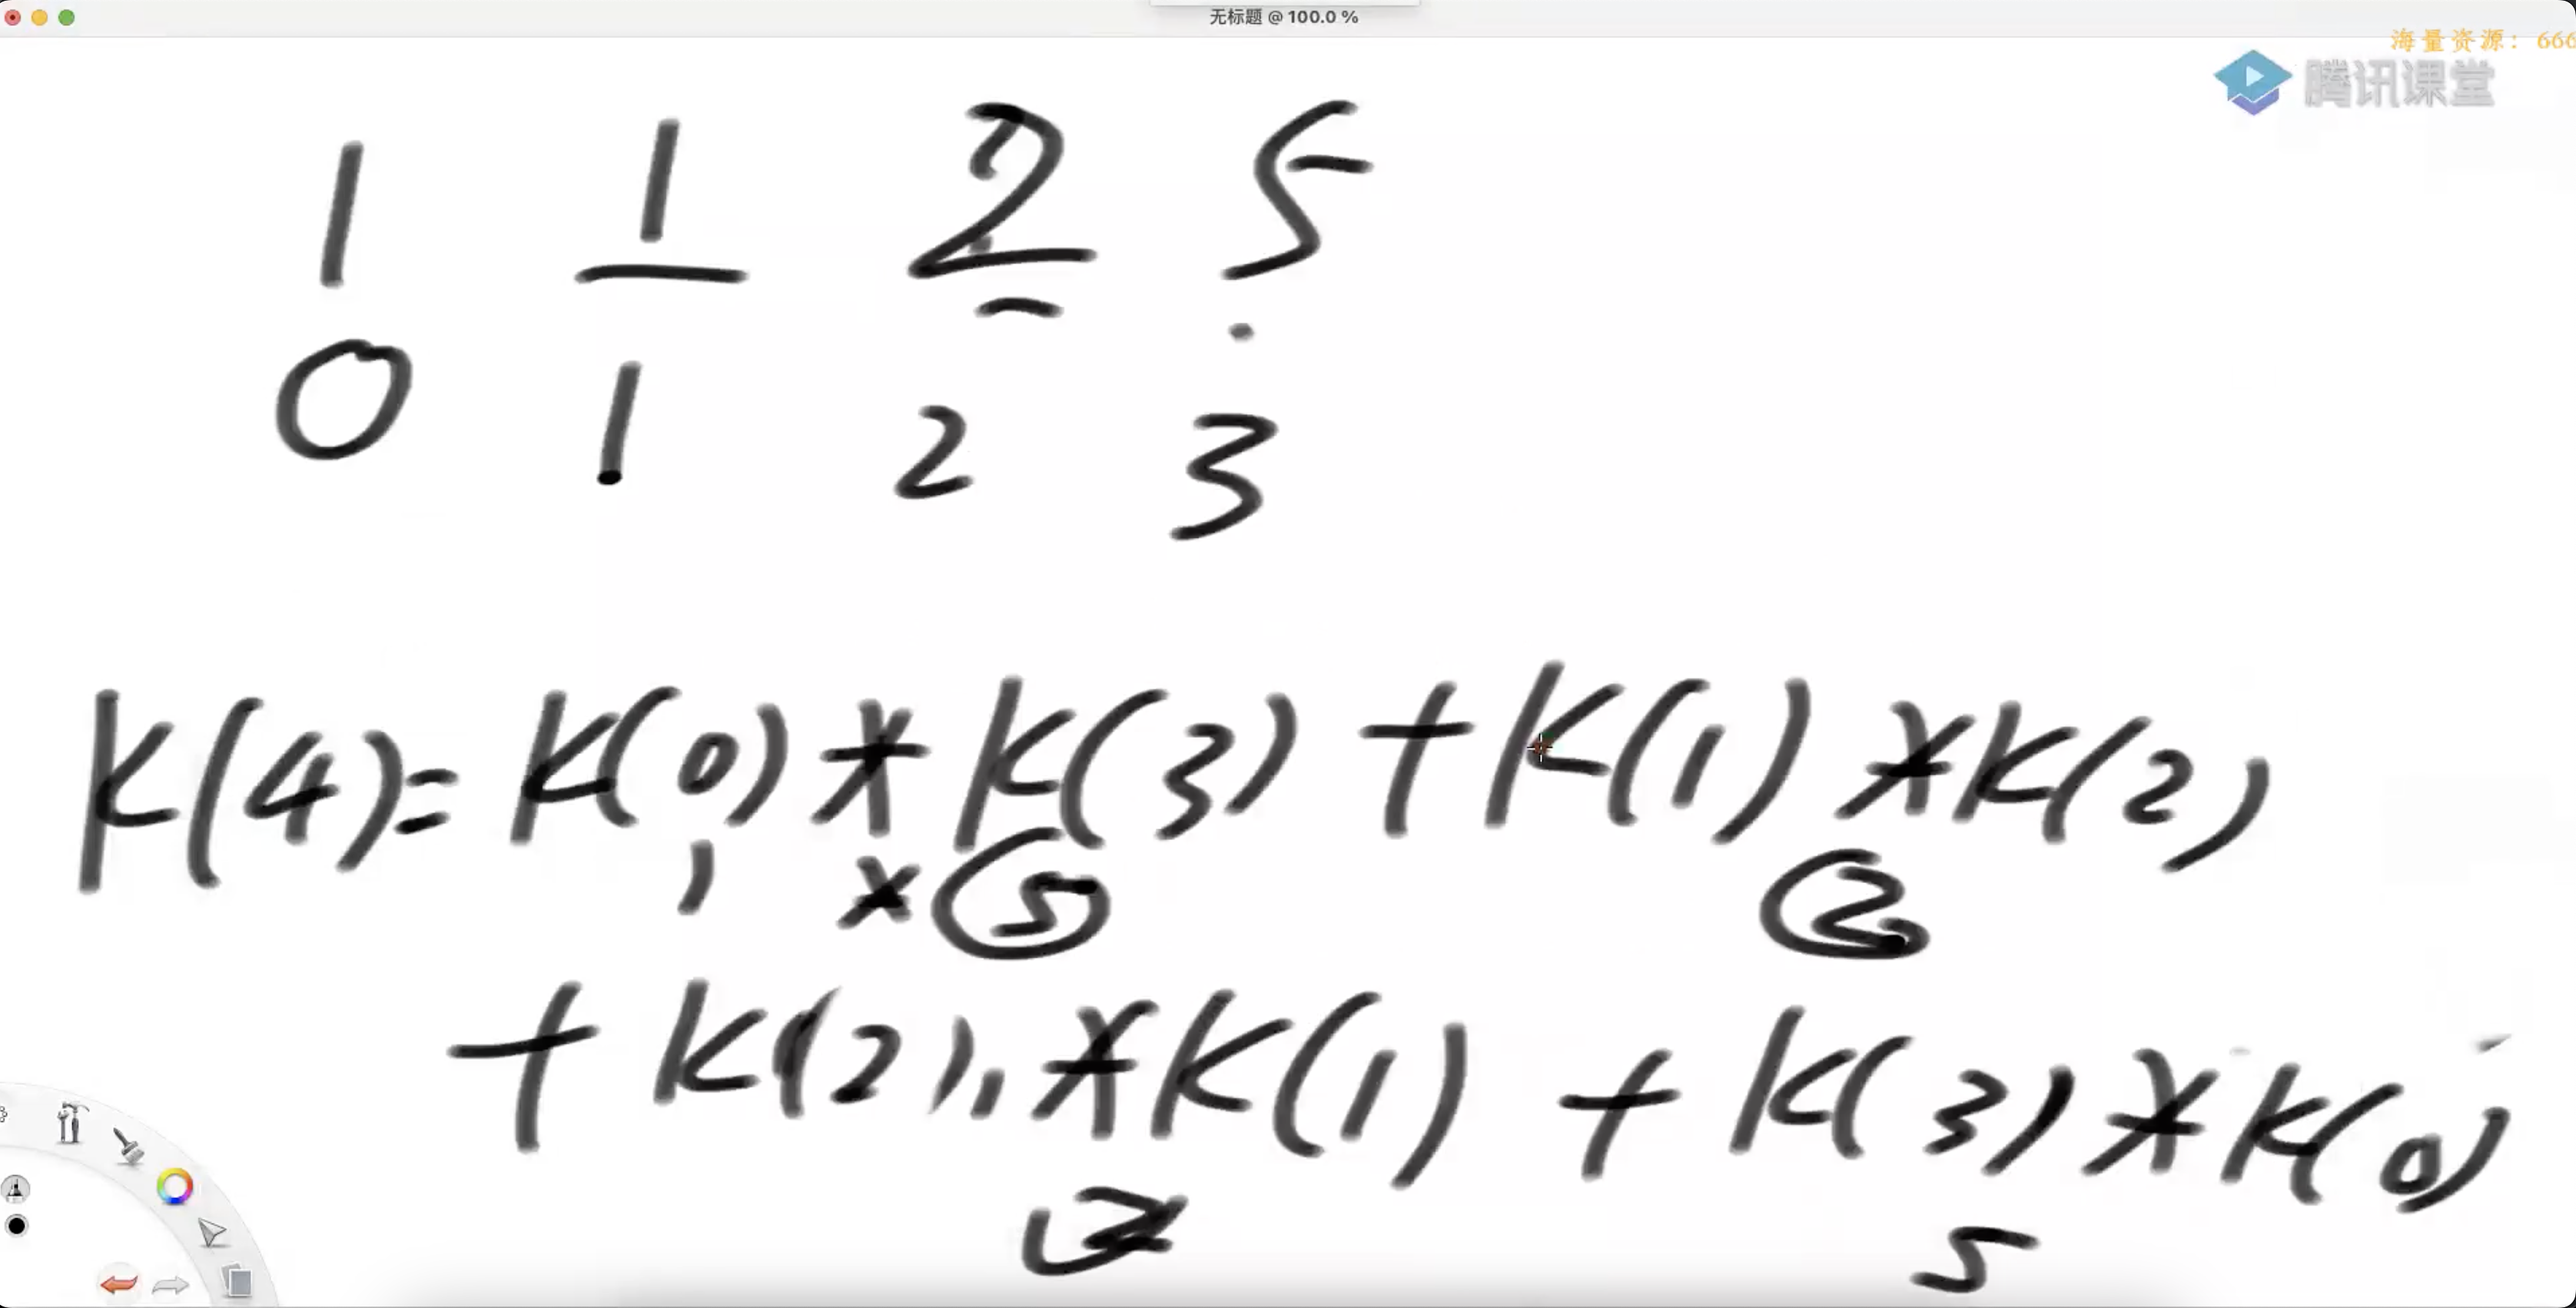 无标题 @ 100.0 %
海量资源: 666
腾讯课堂
1 1 2 5
0 1 2 3
K(4)= K(0) * K(3) + K(1) * K(2)
1 × 5 2
+ K(2) * K(1) + K(3) * K(0)
2 5